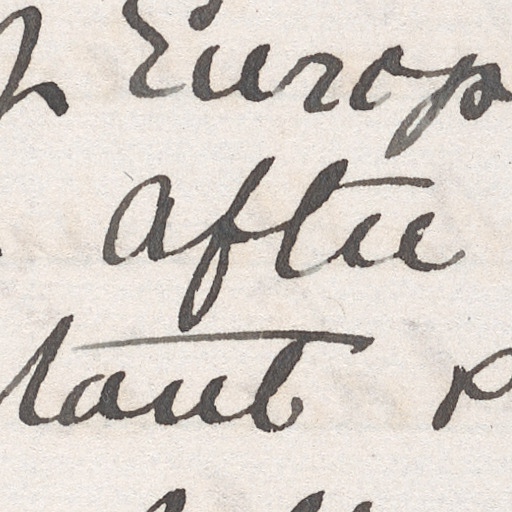 Europ
after
tant